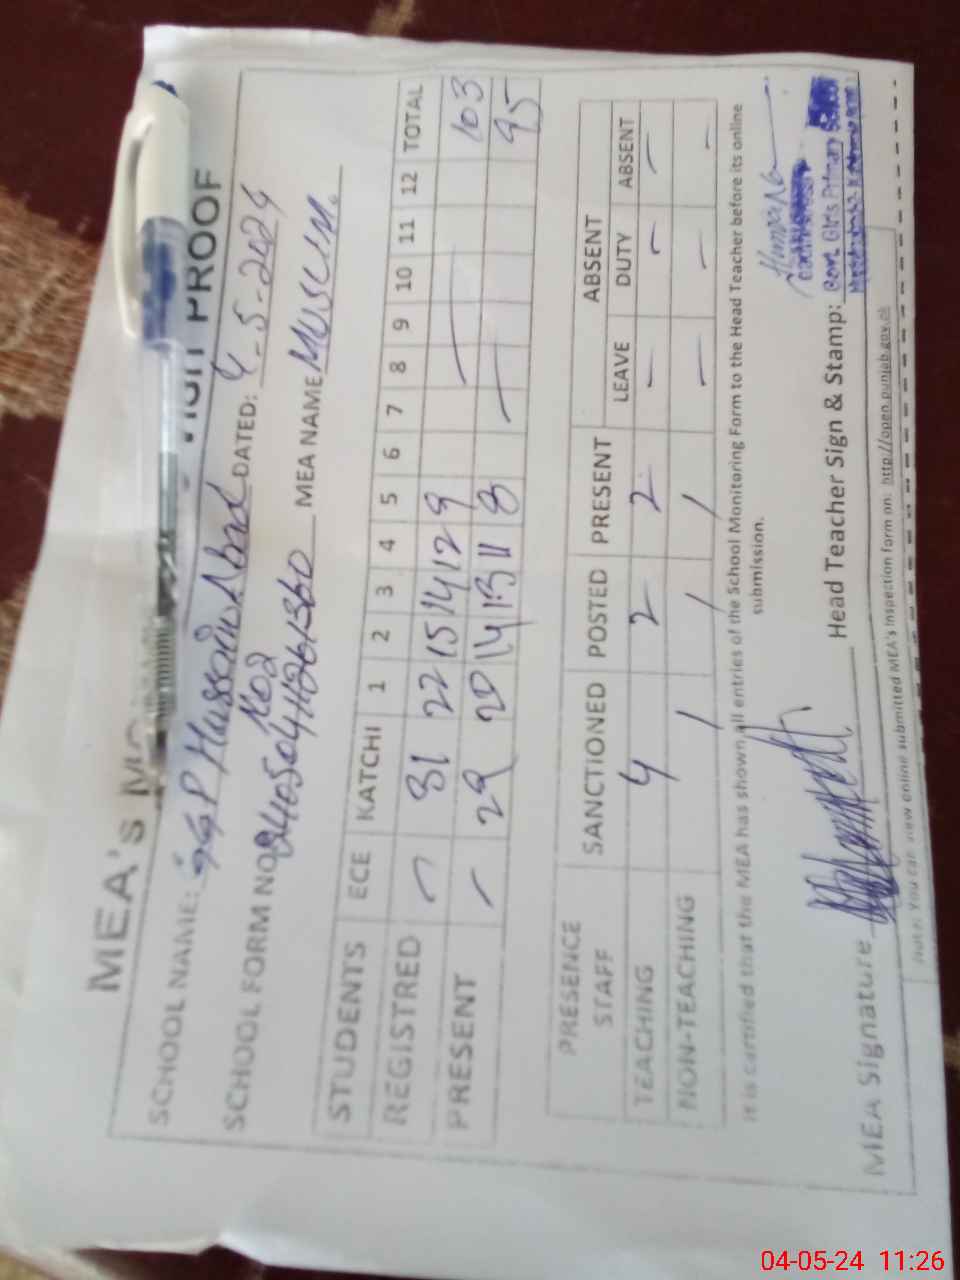 MEA's VISIT PROOF
SCHOOL NAME: GGP Hussain Abad DATED: 4-5-2024
Koa
SCHOOL FORM NO MEA NAME MUSLIM.
STUDENTS ECE KATCHI 1 2 3 4 5 6 7 8 9 10 11 12 TOTAL
REGISTRED — 31 22 15 14 12 9 — 103
PRESENT — 29 20 14 13 11 8 — 95
PRESENCE STAFF SANCTIONED POSTED PRESENT ABSENT
LEAVE DUTY ABSENT
TEACHING 4 2 2 — — —
NON-TEACHING / / / — — —
It is certified that the MEA has shown all entries of the School Monitoring Form to the Head Teacher before its online
submission.
MEA Signature Head Teacher Sign & Stamp: Huma Na
Govt. Girls Primary School
Note: You can view online submitted MEA's inspection form on: http://open.punjab.gov.pk
04-05-24 11:26